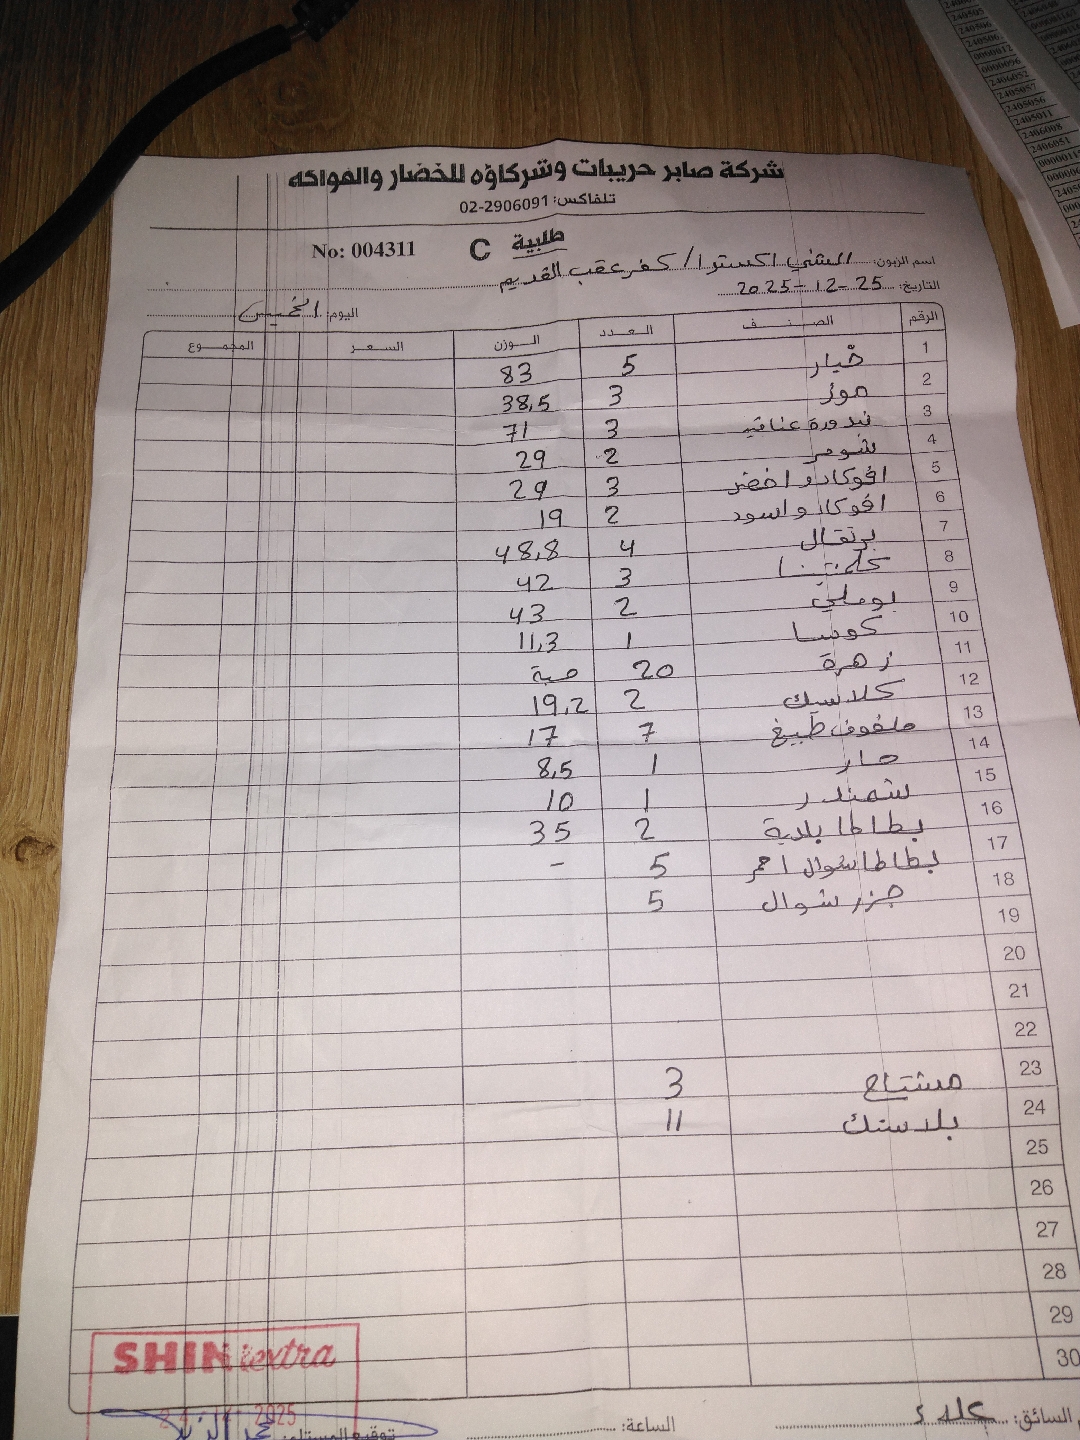 شركة صابر حريبات وشركاؤه للخضار والفواكه
تلفاكس: 02-2906091
طلبية C No: 004311
اسم الزبون: الشني اكسترا / كفر عقب القديم
التاريخ: 25-12-2025
اليوم: الخميس
الرقم الصنف العدد الوزن السعر المجموع
1 خيار 5 83
2 موز 3 38,5
3 بندورة عناقيد 3 71
4 شومر 2 29
5 افوكادو اخضر 3 29
6 افوكادو اسود 2 19
7 برتقال 4 48,8
8 كلمنتينا 3 42
9 بوملي 2 43
10 كوسا 1 11,3
11 زهرة 20 حبة
12 كلاسيك 2 19,2
13 ملفوف طبيخ 7 17
14 حار 1 8,5
15 شمندر 1 10
16 بطاطا بلدية 2 35
17 بطاطا شوال احمر 5 -
18 جزر شوال 5
19
20
21
22
23 مشتاح 3
24 بلاستك 11
25
26
27
28
29
30
SHINI extra
2025
السائق:
الساعة:
توقيع المستلم:
2405056
2405011
2406008
2406051